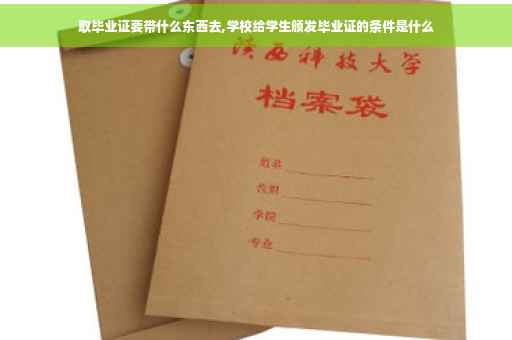 取毕业证要带什么东西去,学校给学生颁发毕业证的条件是什么
陕西科技大学
档案袋
姓名
学院
专业